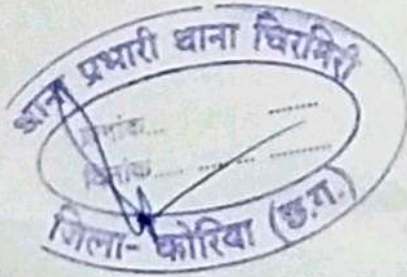 थाना प्रभारी थाना चिरमिरी
क्रमांक... .........
दिनांक..... ........ ........
जिला- कोरिया (छ.ग.)